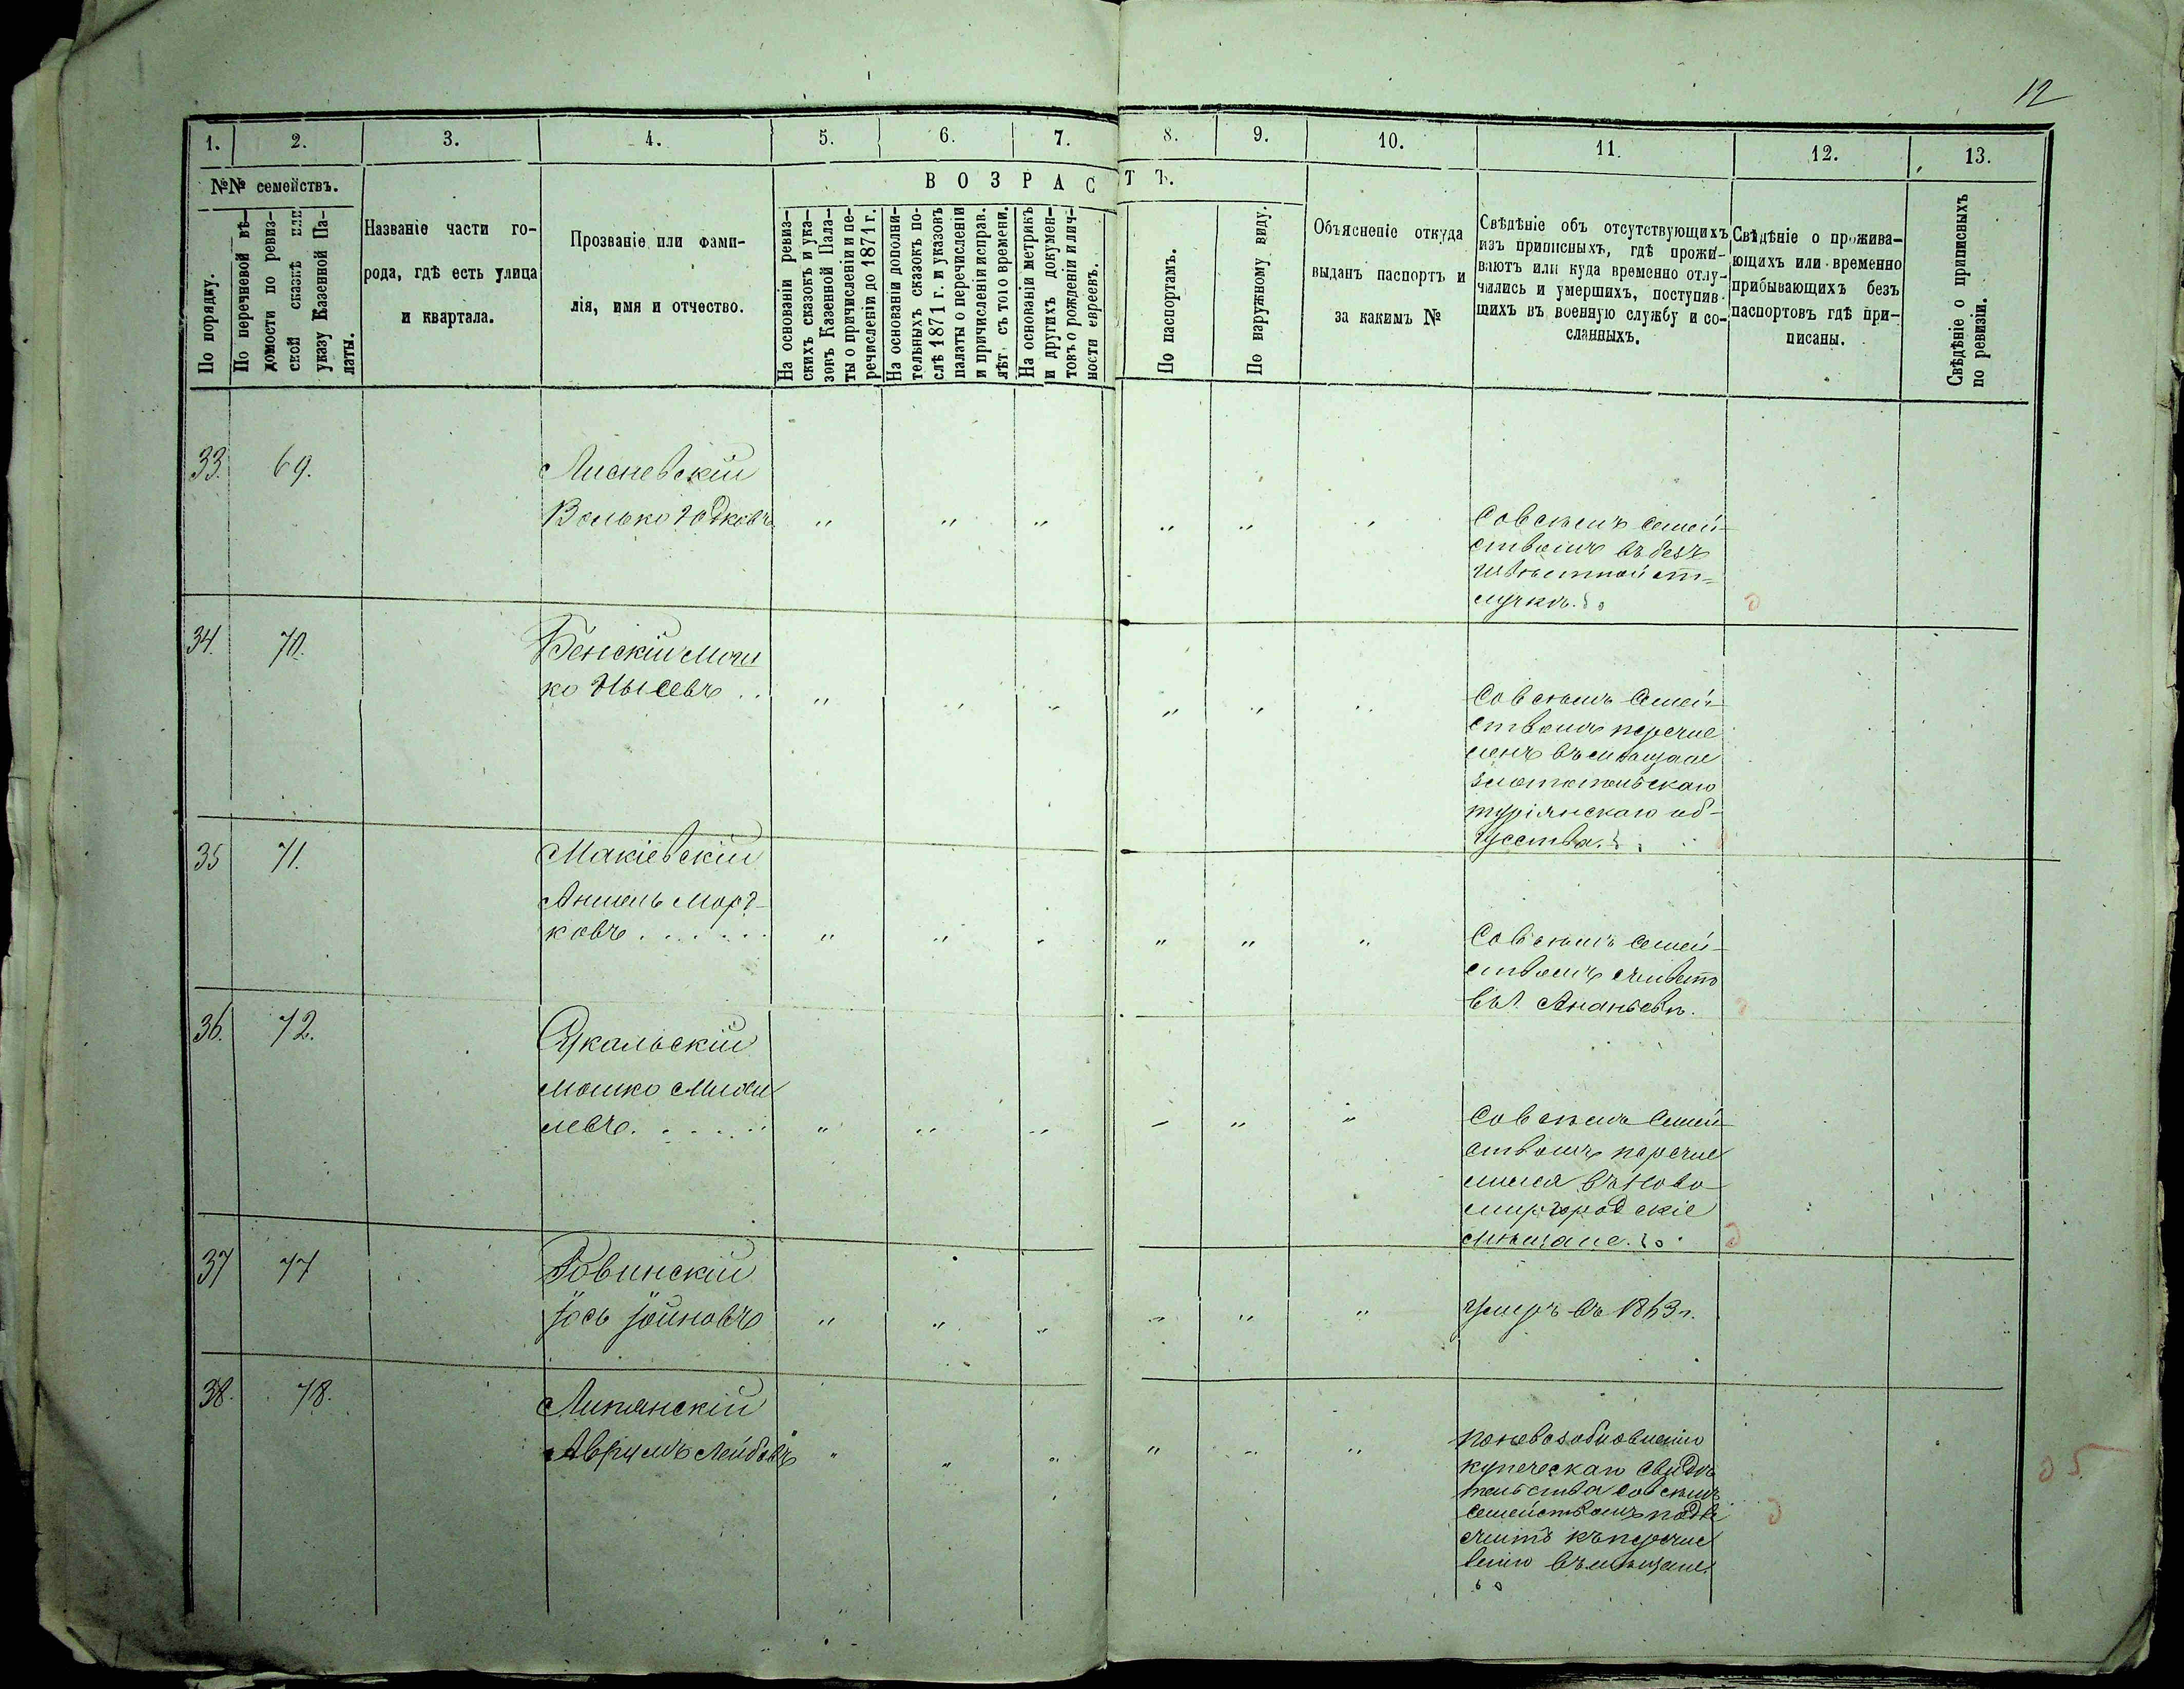 12
1.
2.
3.
4.
5.
6.
7.
8.
9.
10.
11.
12.
13.
№№ семействъ.
ВОЗРАСТЪ.
По порядку.
По перечневой вѣ-
домости по ревиз-
ской сказкѣ или
указу Казенной Па-
латы.
Названіе части го-
рода, гдѣ есть улица
и квартала.
Прозваніе или фами-
лія, имя и отчество.
На основаніи ревиз-
скихъ сказокъ и ука-
зовъ Казенной Пала-
ты о причисленіи и пе-
речисленіи до 1871 г.
На основаніи дополни-
тельныхъ сказокъ по-
слѣ 1871 г. и указовъ
палаты о перечисленіи
и причисленіи исправ.
лѣт. съ того времени.
На основаніи метрикъ
и другихъ докумен-
товъ о рожденіи и лич-
ности евреевъ.
По паспортамъ.
По наружному виду.
Объясненіе откуда
выданъ паспортъ и
за какимъ №
Свѣдѣніе объ отсутствующихъ
изъ приписныхъ, гдѣ прожи-
ваютъ или куда временно отлу-
чились и умершихъ, поступив-
шихъ въ военную службу и со-
сланныхъ.
Свѣдѣніе о прожива-
ющихъ или временно
прибывающихъ безъ
паспортовъ гдѣ при-
писаны.
Свѣдѣніе о приписныхъ
по ревизіи.
33. 69.
Лисневскій
Волько Юдковъ " " " " " "
Совсѣмъ семей-
ствомъ въ безъ
извѣстной от=
лучкѣ.
34. 70.
Бенскій Мош
ко Нысевъ .. " " " " " "
Совсѣмъ семей-
ствомъ перечис
ленъ въ мѣщане
Златопольскаго
турійскаго об-
щества.
35 71.
Макіевскій
Аншель Морд-
ковъ . . . . . . " " " " " "
Совсѣмъ семей-
ствомъ живетъ
въ г. Ананьевѣ.
36. 72.
Скальскій
Мошко
левъ. . . . . " " " " " "
Совсѣмъ семей
ствомъ перечис
лился въ Ново-
миргородскіе
мѣщане.
37 77
Ровинскій
Іось Іойновъ " " " " " "
Умеръ въ 1863 г.
38. 78.
Липянскій
Аврумъ Лейбовъ " " " " " "
по невозобновленію
купеческаго свидѣ
тельства совсѣмъ
семействомъ подле
житъ къ перечис
ленію въ мѣщане.